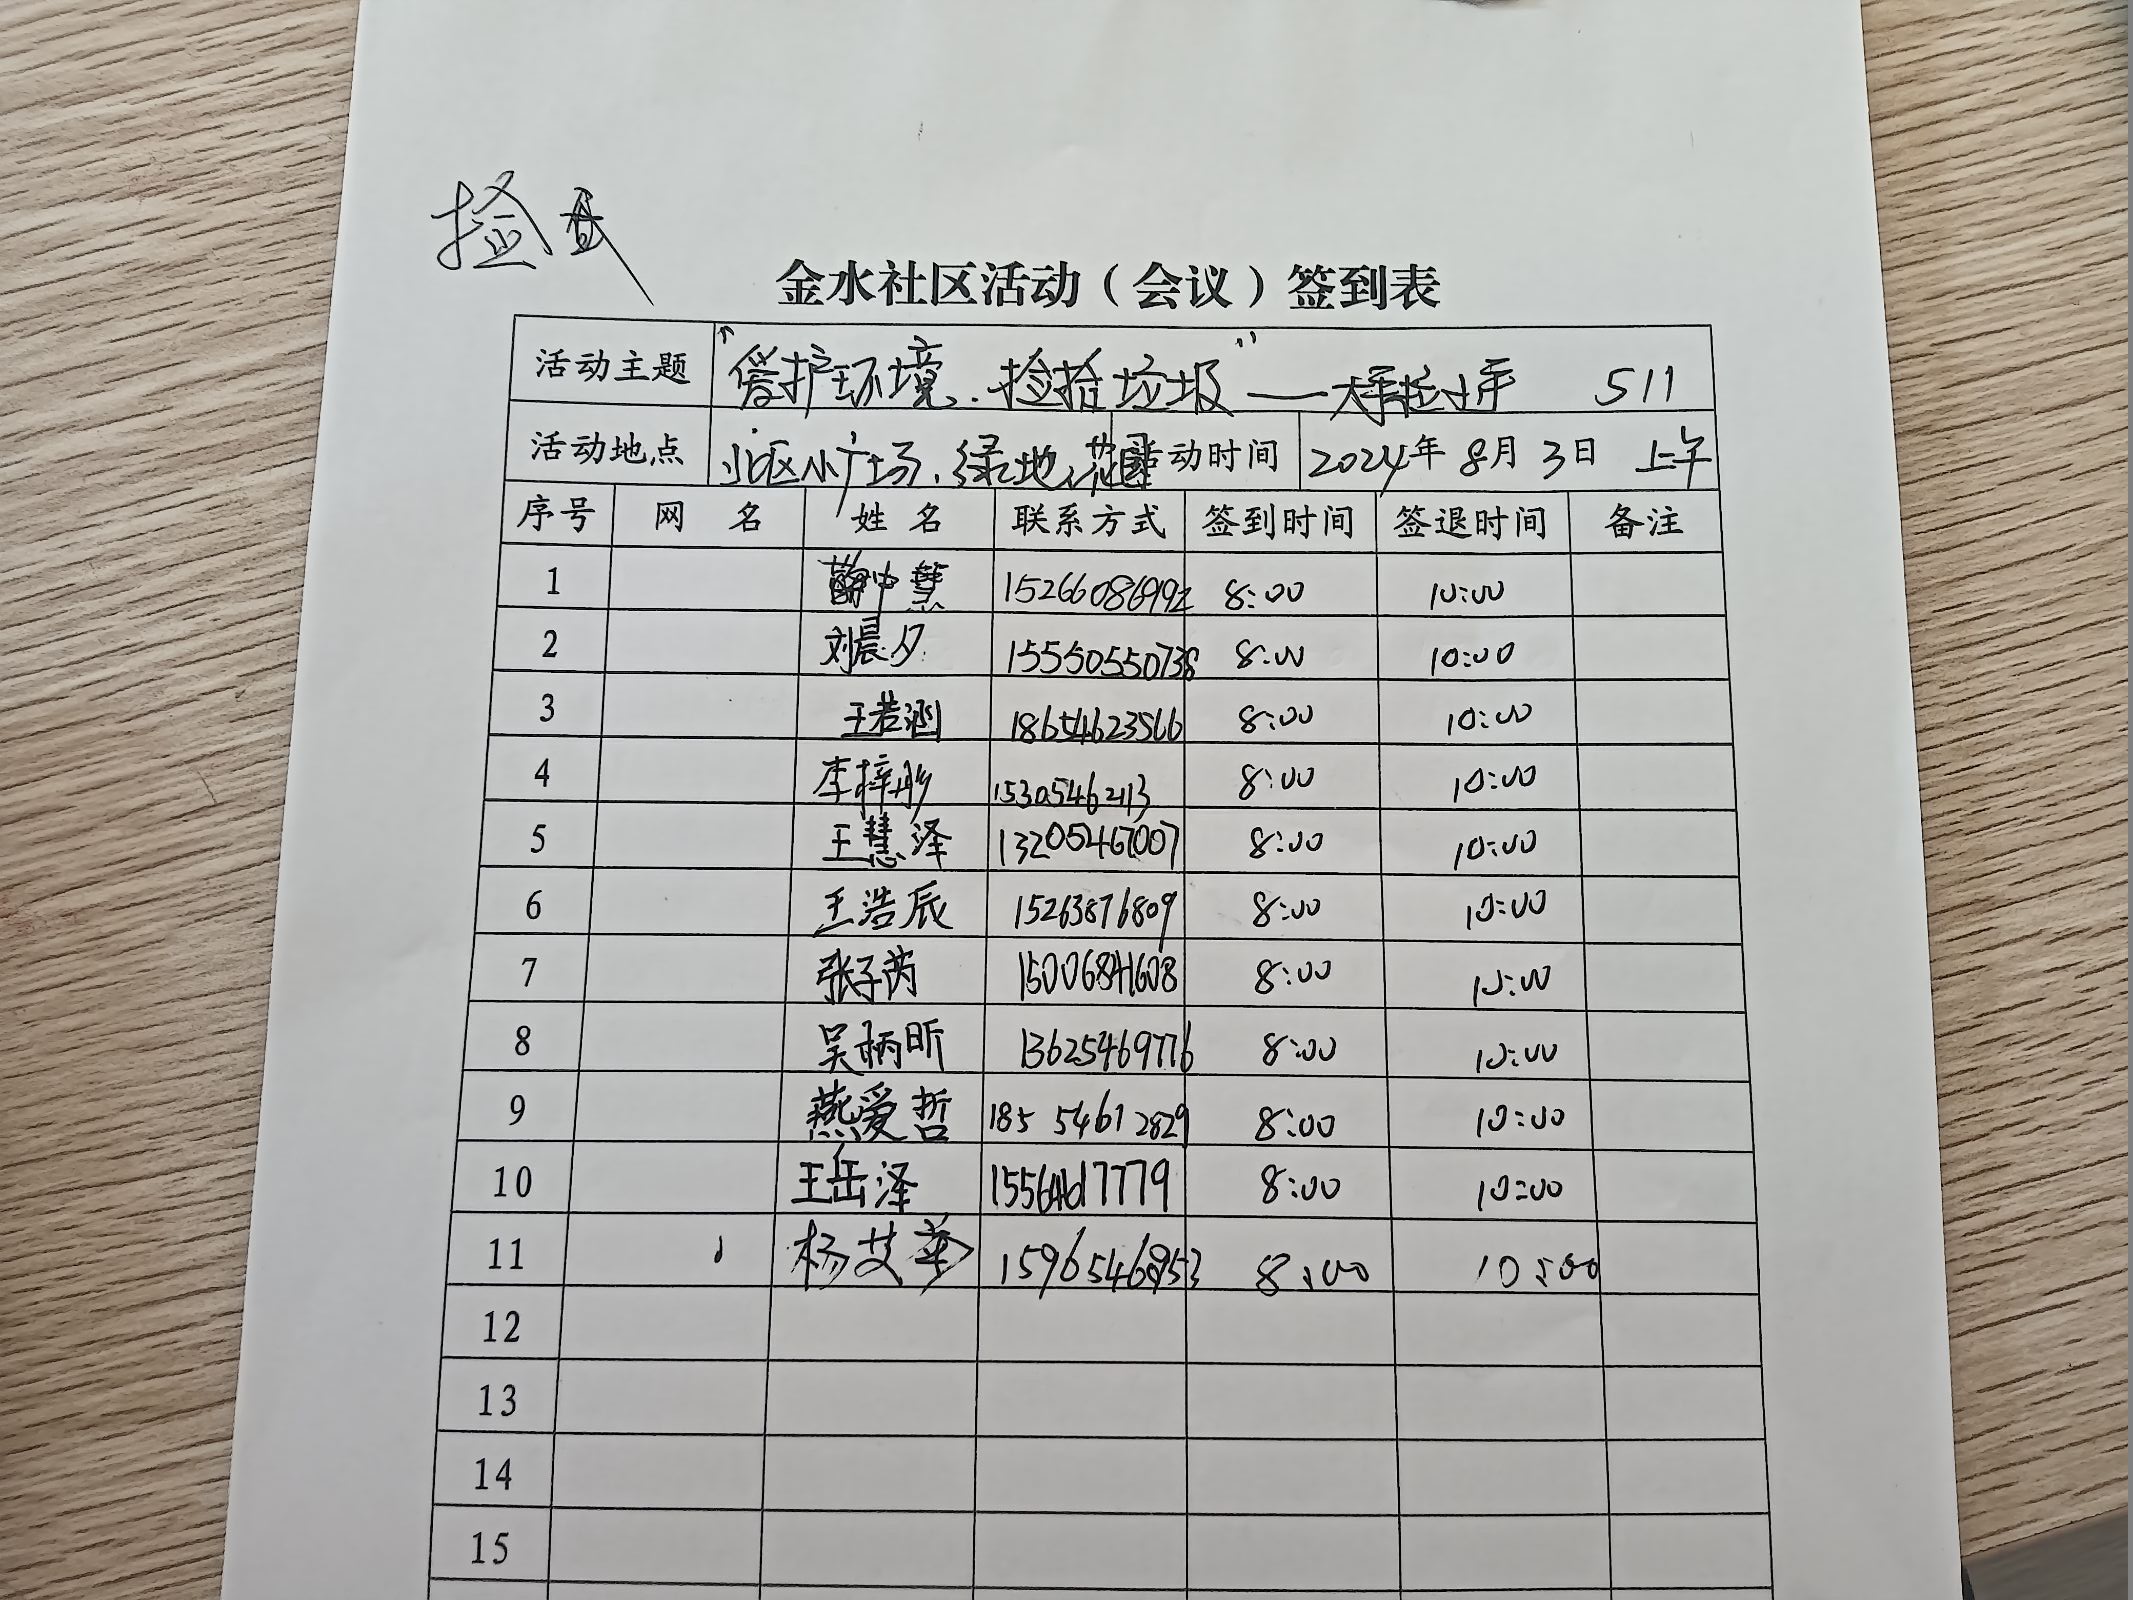 捡
金水社区活动（会议）签到表
活动主题 "爱护环境.捡拾垃圾"——大手拉小手 511
活动地点 北区小广场、绿地、花园 活动时间 2024年8月3日 上午
序号 网 名 姓 名 联系方式 签到时间 签退时间 备注
1 中慧 8:00 10:00
2 刘晨夕 15550550738 8:00 10:00
3 王若涵 18654623566 8:00 10:00
4 李梓彤 8:00 10:00
5 王慧泽 13205467007 8:00 10:00
6 王浩辰 15263876809 8:00 10:00
7 张子芮 15006841608 8:00 10:00
8 吴柄昕 13625469776 8:00 10:00
9 燕爱哲 185 5461 2829 8:00 10:00
10 王岳泽 8:00 10:00
11 杨艾华 8:00 10:00
12
13
14
15